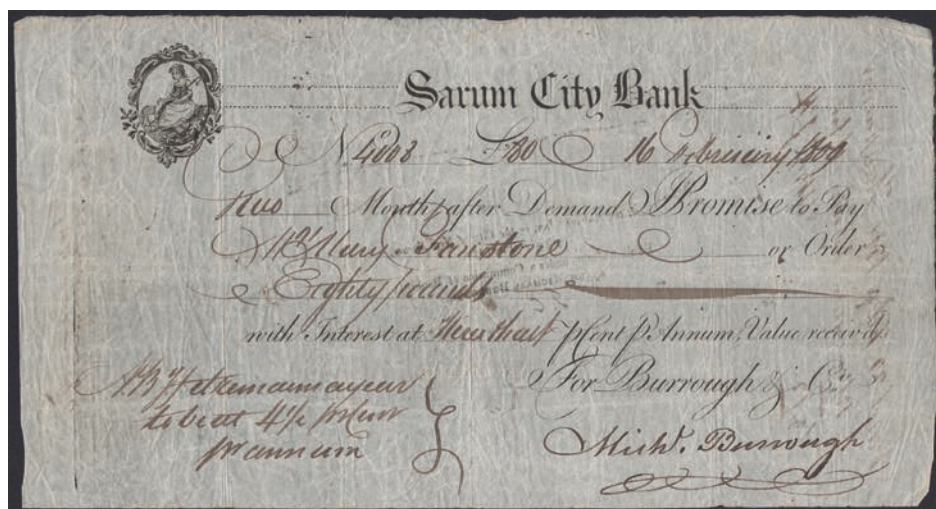 Sarum City Bank
No 4008 £80 16 February 1809
Two Months after Demand I Promise to Pay
Mrs Mary Fanstone or Order
Eighty pounds
with Interest at Three & half p Cent p Annum, Value receiv'd
For Burrough & Co
NB If it remain a year
to be at 4½ pr Cent
pr annum
Michl. Burrough